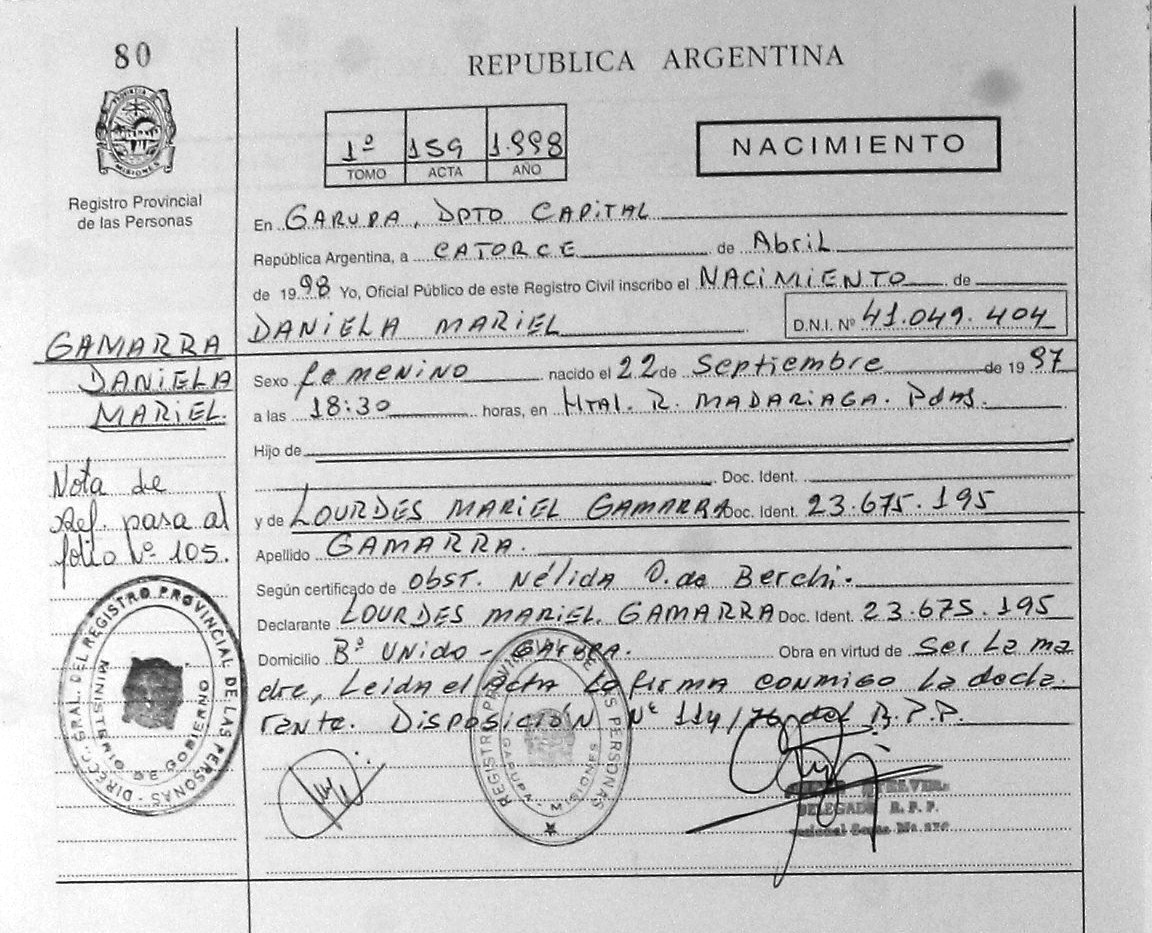 80
REPUBLICA ARGENTINA
PROVINCIA DE MISIONES
Registro Provincial
de las Personas
1º 159 1.998
TOMO ACTA AÑO
NACIMIENTO
En GARUPA, DPTO CAPITAL
República Argentina, a CATORCE de Abril
de 1998 Yo, Oficial Público de este Registro Civil inscribo el NACIMIENTO de
DANIELA MARIEL D.N.I. Nº 41.049.404
GAMARRA
DANIELA
MARIEL.
Sexo femenino nacido el 22 de Septiembre de 1997
a las 18:30 horas, en Htal. R. MADARIAGA. Pdas.
Hijo de
Doc. Ident.
y de LOURDES MARIEL GAMARRA Doc. Ident. 23.675.195
Apellido GAMARRA.
Según certificado de obst. Nélida O. de Berchi.
Declarante LOURDES MARIEL GAMARRA Doc. Ident. 23.675.195
Domicilio Bº UNIDO - GARUPA. Obra en virtud de Ser La ma
dre, Leida el Acta La firma conmigo La decla
rante. Disposición Nº 114/76 del R.P.P.
Nota de
Ref. pasa al
folio Nº 105.
DIRECC. GRAL. DEL REGISTRO PROVINCIAL DE LAS PERSONAS
MINISTERIO DE GOBIERNO
REGISTRO PROVINCIAL DE LAS PERSONAS
GARUPA - MISIONES
DELEGADO R. P. P.